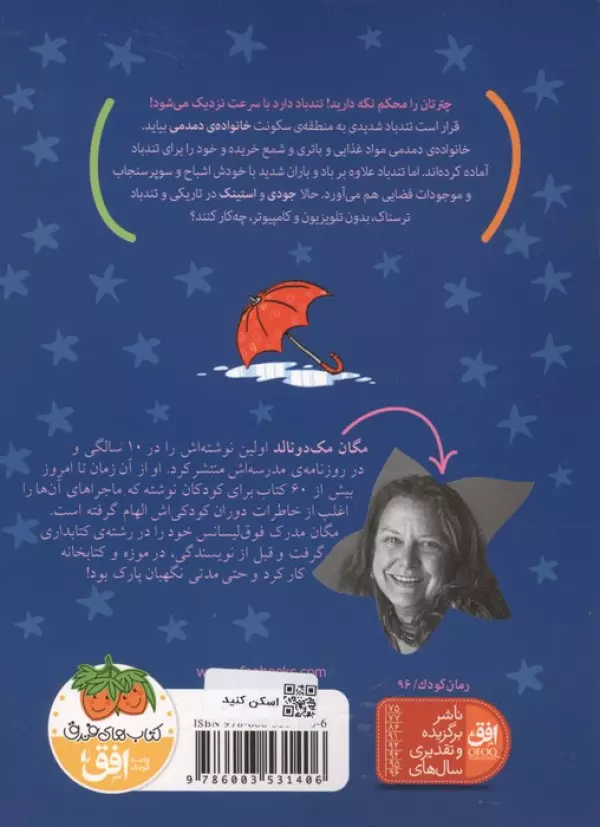 چترتان را محکم نگه دارید! تندباد دارد با سرعت نزدیک می‌شود!
قرار است تندباد شدیدی به منطقه‌ی سکونت خانواده‌ی دمدمی بیاید.
خانواده‌ی دمدمی مواد غذایی و باتری و شمع خریده و خود را برای تندباد
آماده کرده‌اند. اما تندباد علاوه بر باد و باران شدید با خودش اشباح و سوپرسنجاب
و موجودات فضایی هم می‌آورد. حالا جودی و استینک در تاریکی و تندباد
ترسناک، بدون تلویزیون و کامپیوتر، چه‌کار کنند؟
مگان مک‌دونالد اولین نوشته‌اش را در ۱۰ سالگی و
در روزنامه‌ی مدرسه‌اش منتشر کرد. او از آن زمان تا امروز
بیش از ۶۰ کتاب برای کودکان نوشته که ماجراهای آن‌ها را
اغلب از خاطرات دوران کودکی‌اش الهام گرفته است.
مگان مدرک فوق‌لیسانس خود را در رشته‌ی کتابداری
گرفت و قبل از نویسندگی، در موزه و کتابخانه
کار کرد و حتی مدتی نگهبان پارک بود!
رمان کودک/ ۹۶
ناشر
برگزیده
و تقدیری
سال‌های
افق
OFOQ
اسکن کنید
ISBN 978-600
9 786003 531406
کتاب‌های فندق
افق